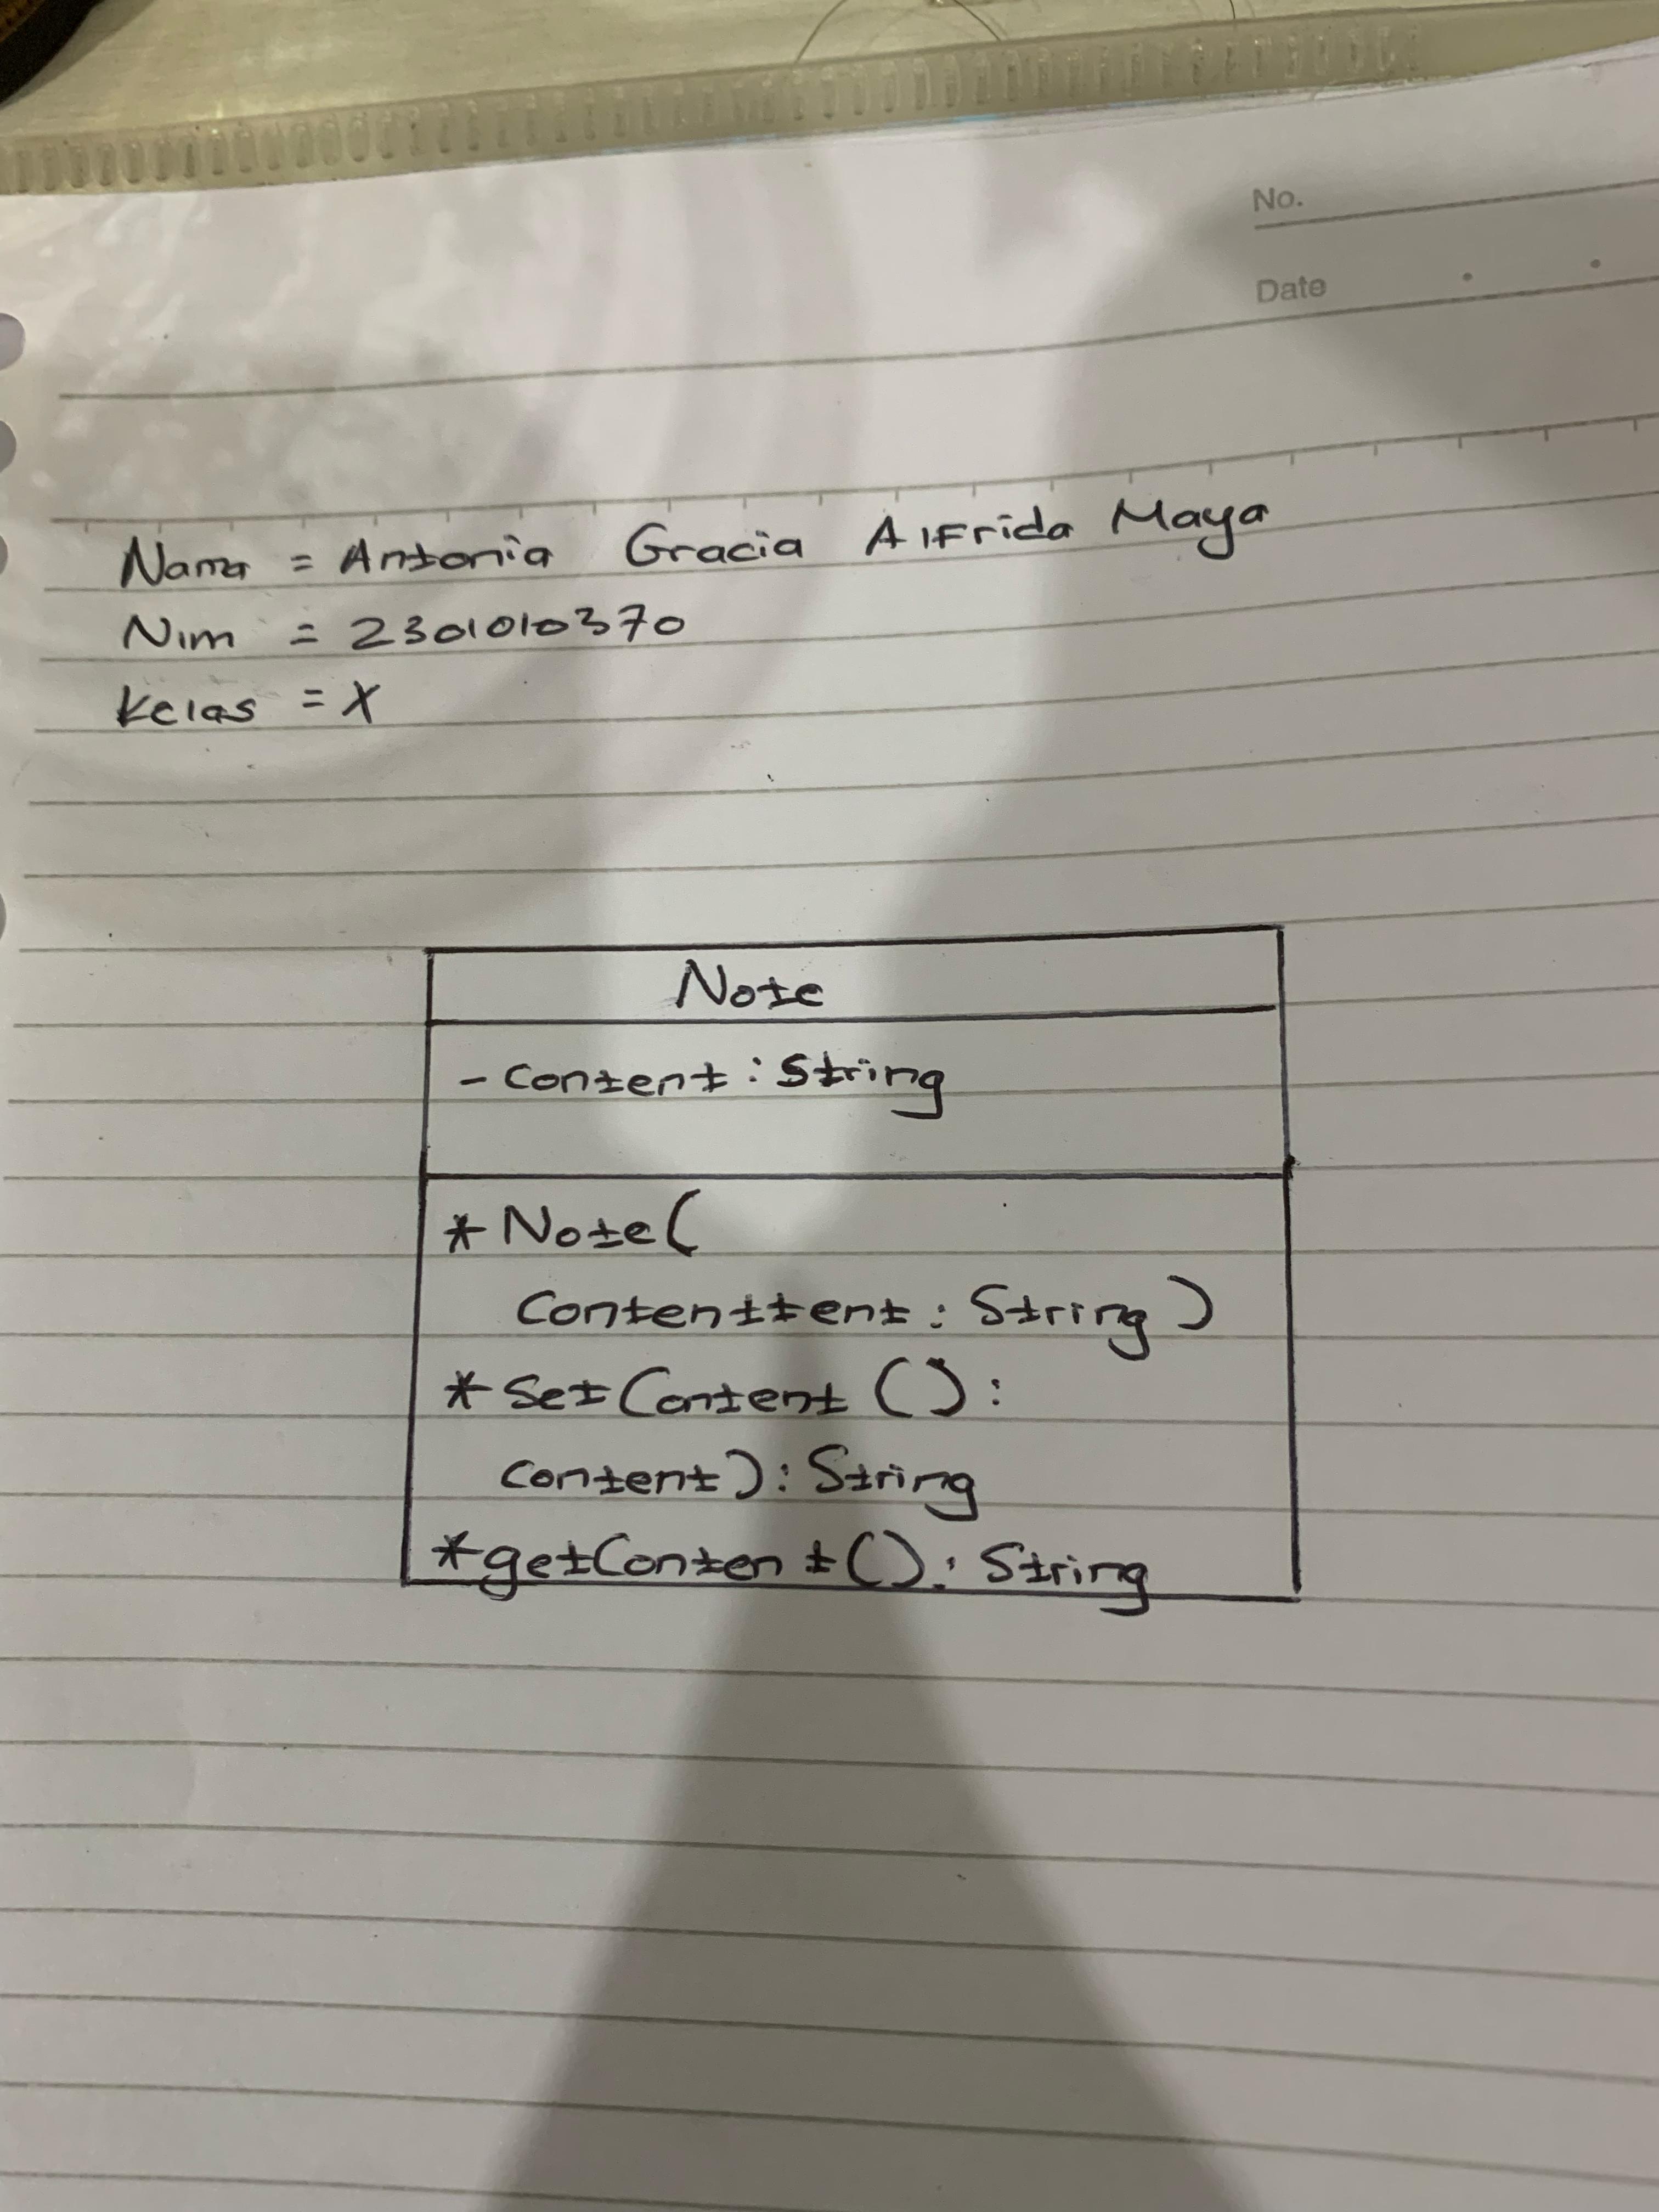 No.
Date
Nama = Antonia Gracia Alfrida Maya
Nim = 2301010370
Kelas = X
Note
- Content : String
* Note (
Contenttent : String )
* Set Content () :
content ) : String
* getContent () : String